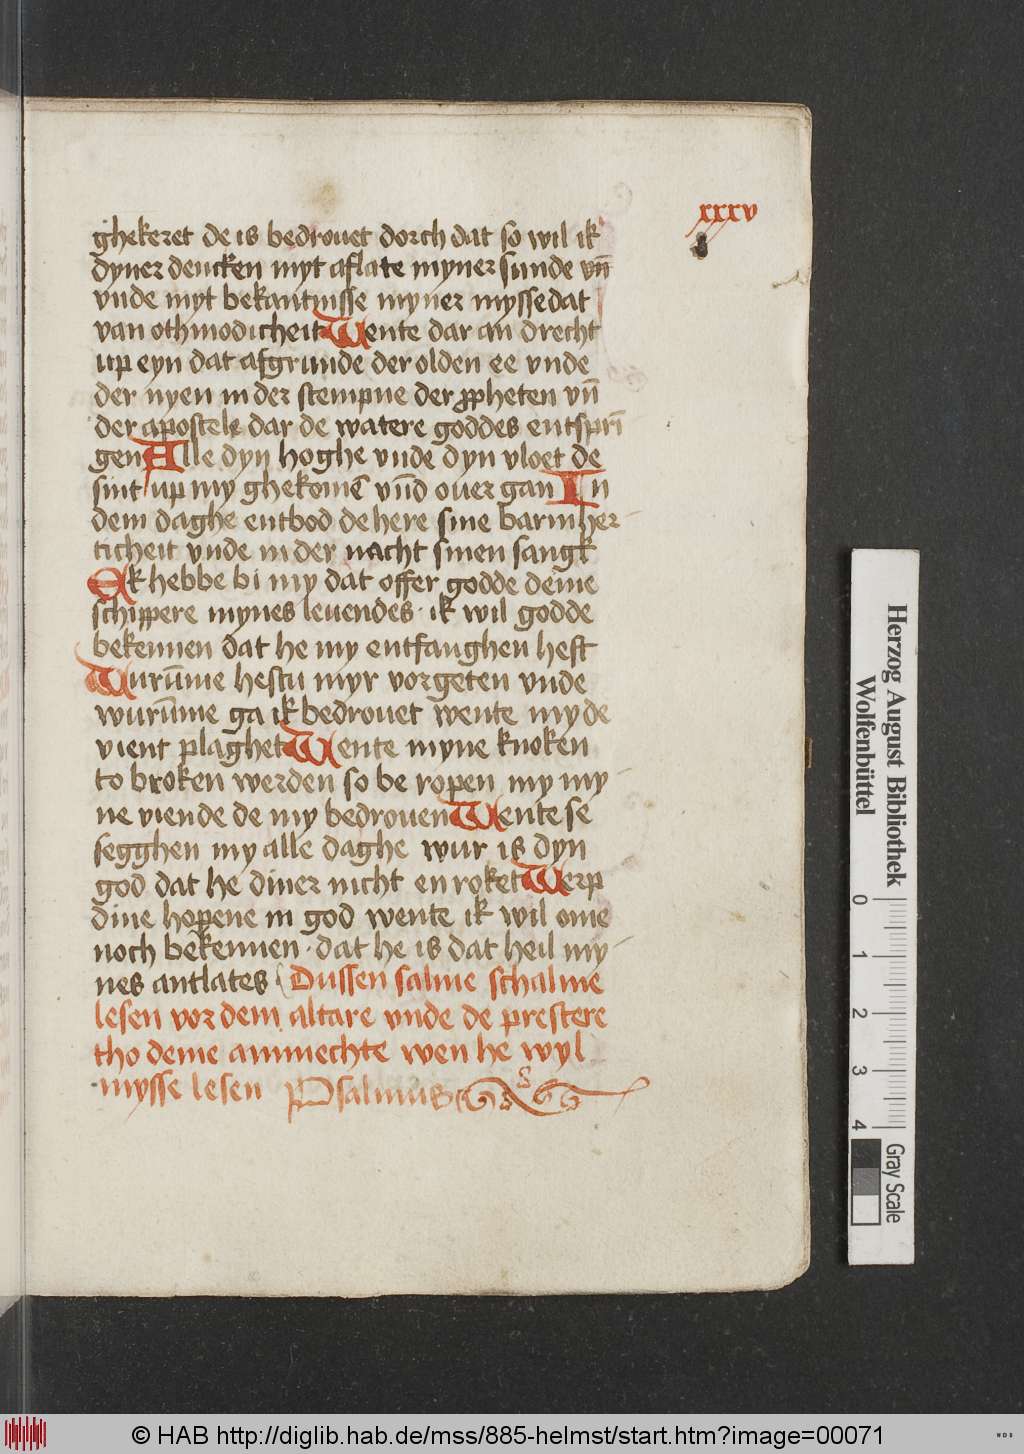 xxxv
ghekeret de is bedrouet dorch dat so wil ik
dyner dencken myt aflate myner sunde vn̄
vnde myt bekantnisse myner myssedat
van othmodicheit Wente dar an drecht
up eyn dat afgrunde der olden ee vnde
der nyen in der stempne der ꝓpheten vn̄
der apostele dar de watere goddes entsprī
gen Alle dyn hoghe vnde dyn vloet de
sint up my ghekomē vn̄d ouer gan In
dem daghe entbod de here sine barmher
ticheit vnde in der nacht sinen sangk
Ek hebbe bi my dat offer godde deme
schippere mynes leuendes · ik wil godde
bekennen dat he my entfanghen heft
Wurūme hestu myr vorgeten vnde
wurūme ga ik bedrouet wente my de
vient plaghet Wente myne knoken
to broken werden so be ropen my my
ne viende de my bedrouen Wente se
segghen my alle daghe wur is dyn
god dat he diner nicht en roket Werp
dine hopene in god wente ik wil ome
noch bekennen · dat he is dat heil my
nes antlates Dussen salme schalme
lesen vor dem altare vnde de prestere
tho deme ammechte wen he wyl
mysse lesen Psalmus
Herzog August Bibliothek
Wolfenbüttel
0 1 2 3 4
Gray Scale
© HAB http://diglib.hab.de/mss/885-helmst/start.htm?image=00071
WDB